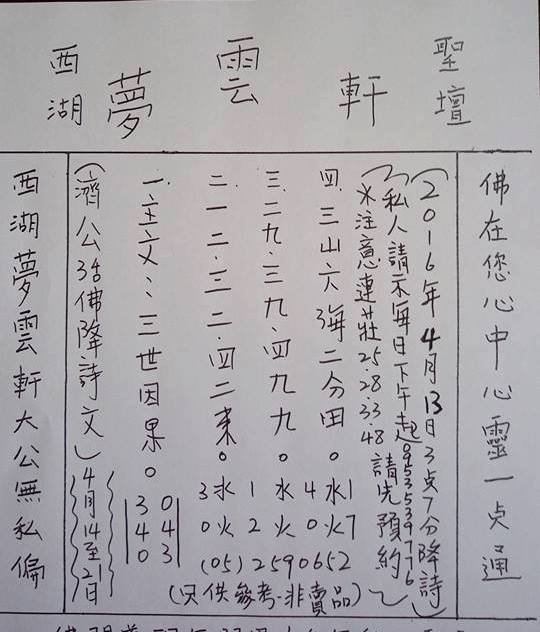 西湖夢雲軒聖壇
佛在您心中心靈一点通
(2016年4月13日3点7分降詩)
(私人請示每日下午起請先預約)
※注意連莊25.28.33.48
四.三山六海二分田。
三.二九.三九.四九九。
二.一二.三二.四二來。
一.主文:三世因果。
(濟公活佛降詩文)4月14至21日
西湖夢雲軒大公無私偏
3水 1水 4水1
0火 2火 0火7
340 043
(05)2590652
(只供參考-非賣品)